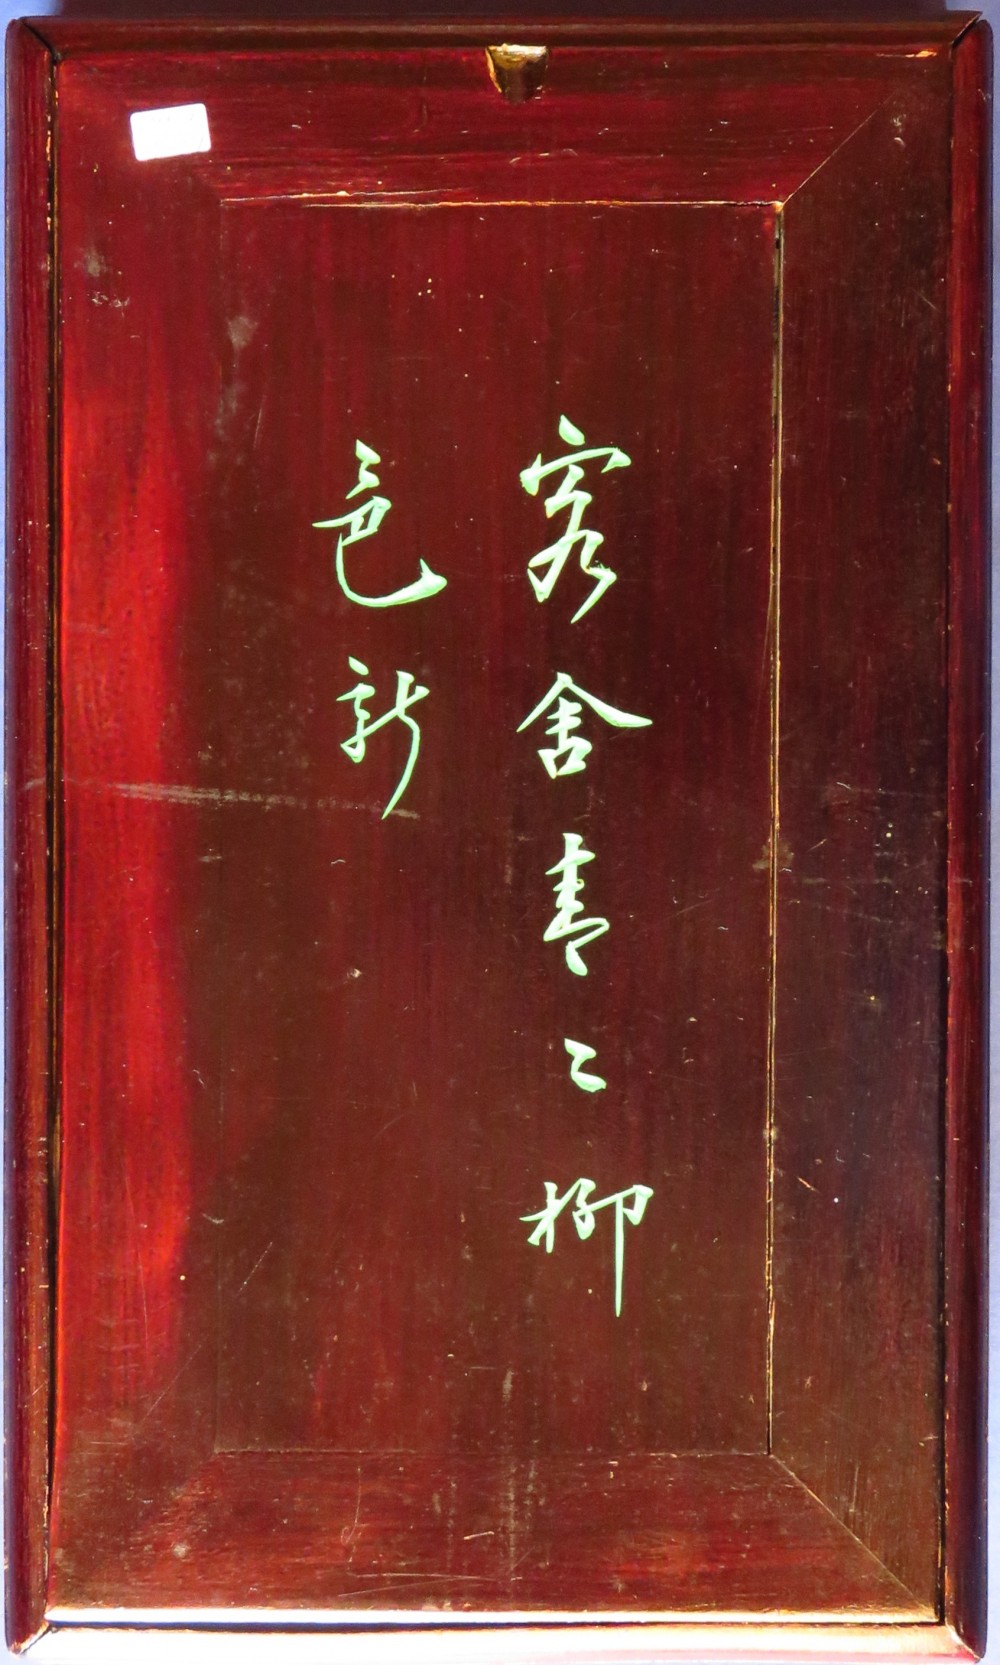 客舍青〻柳
色新